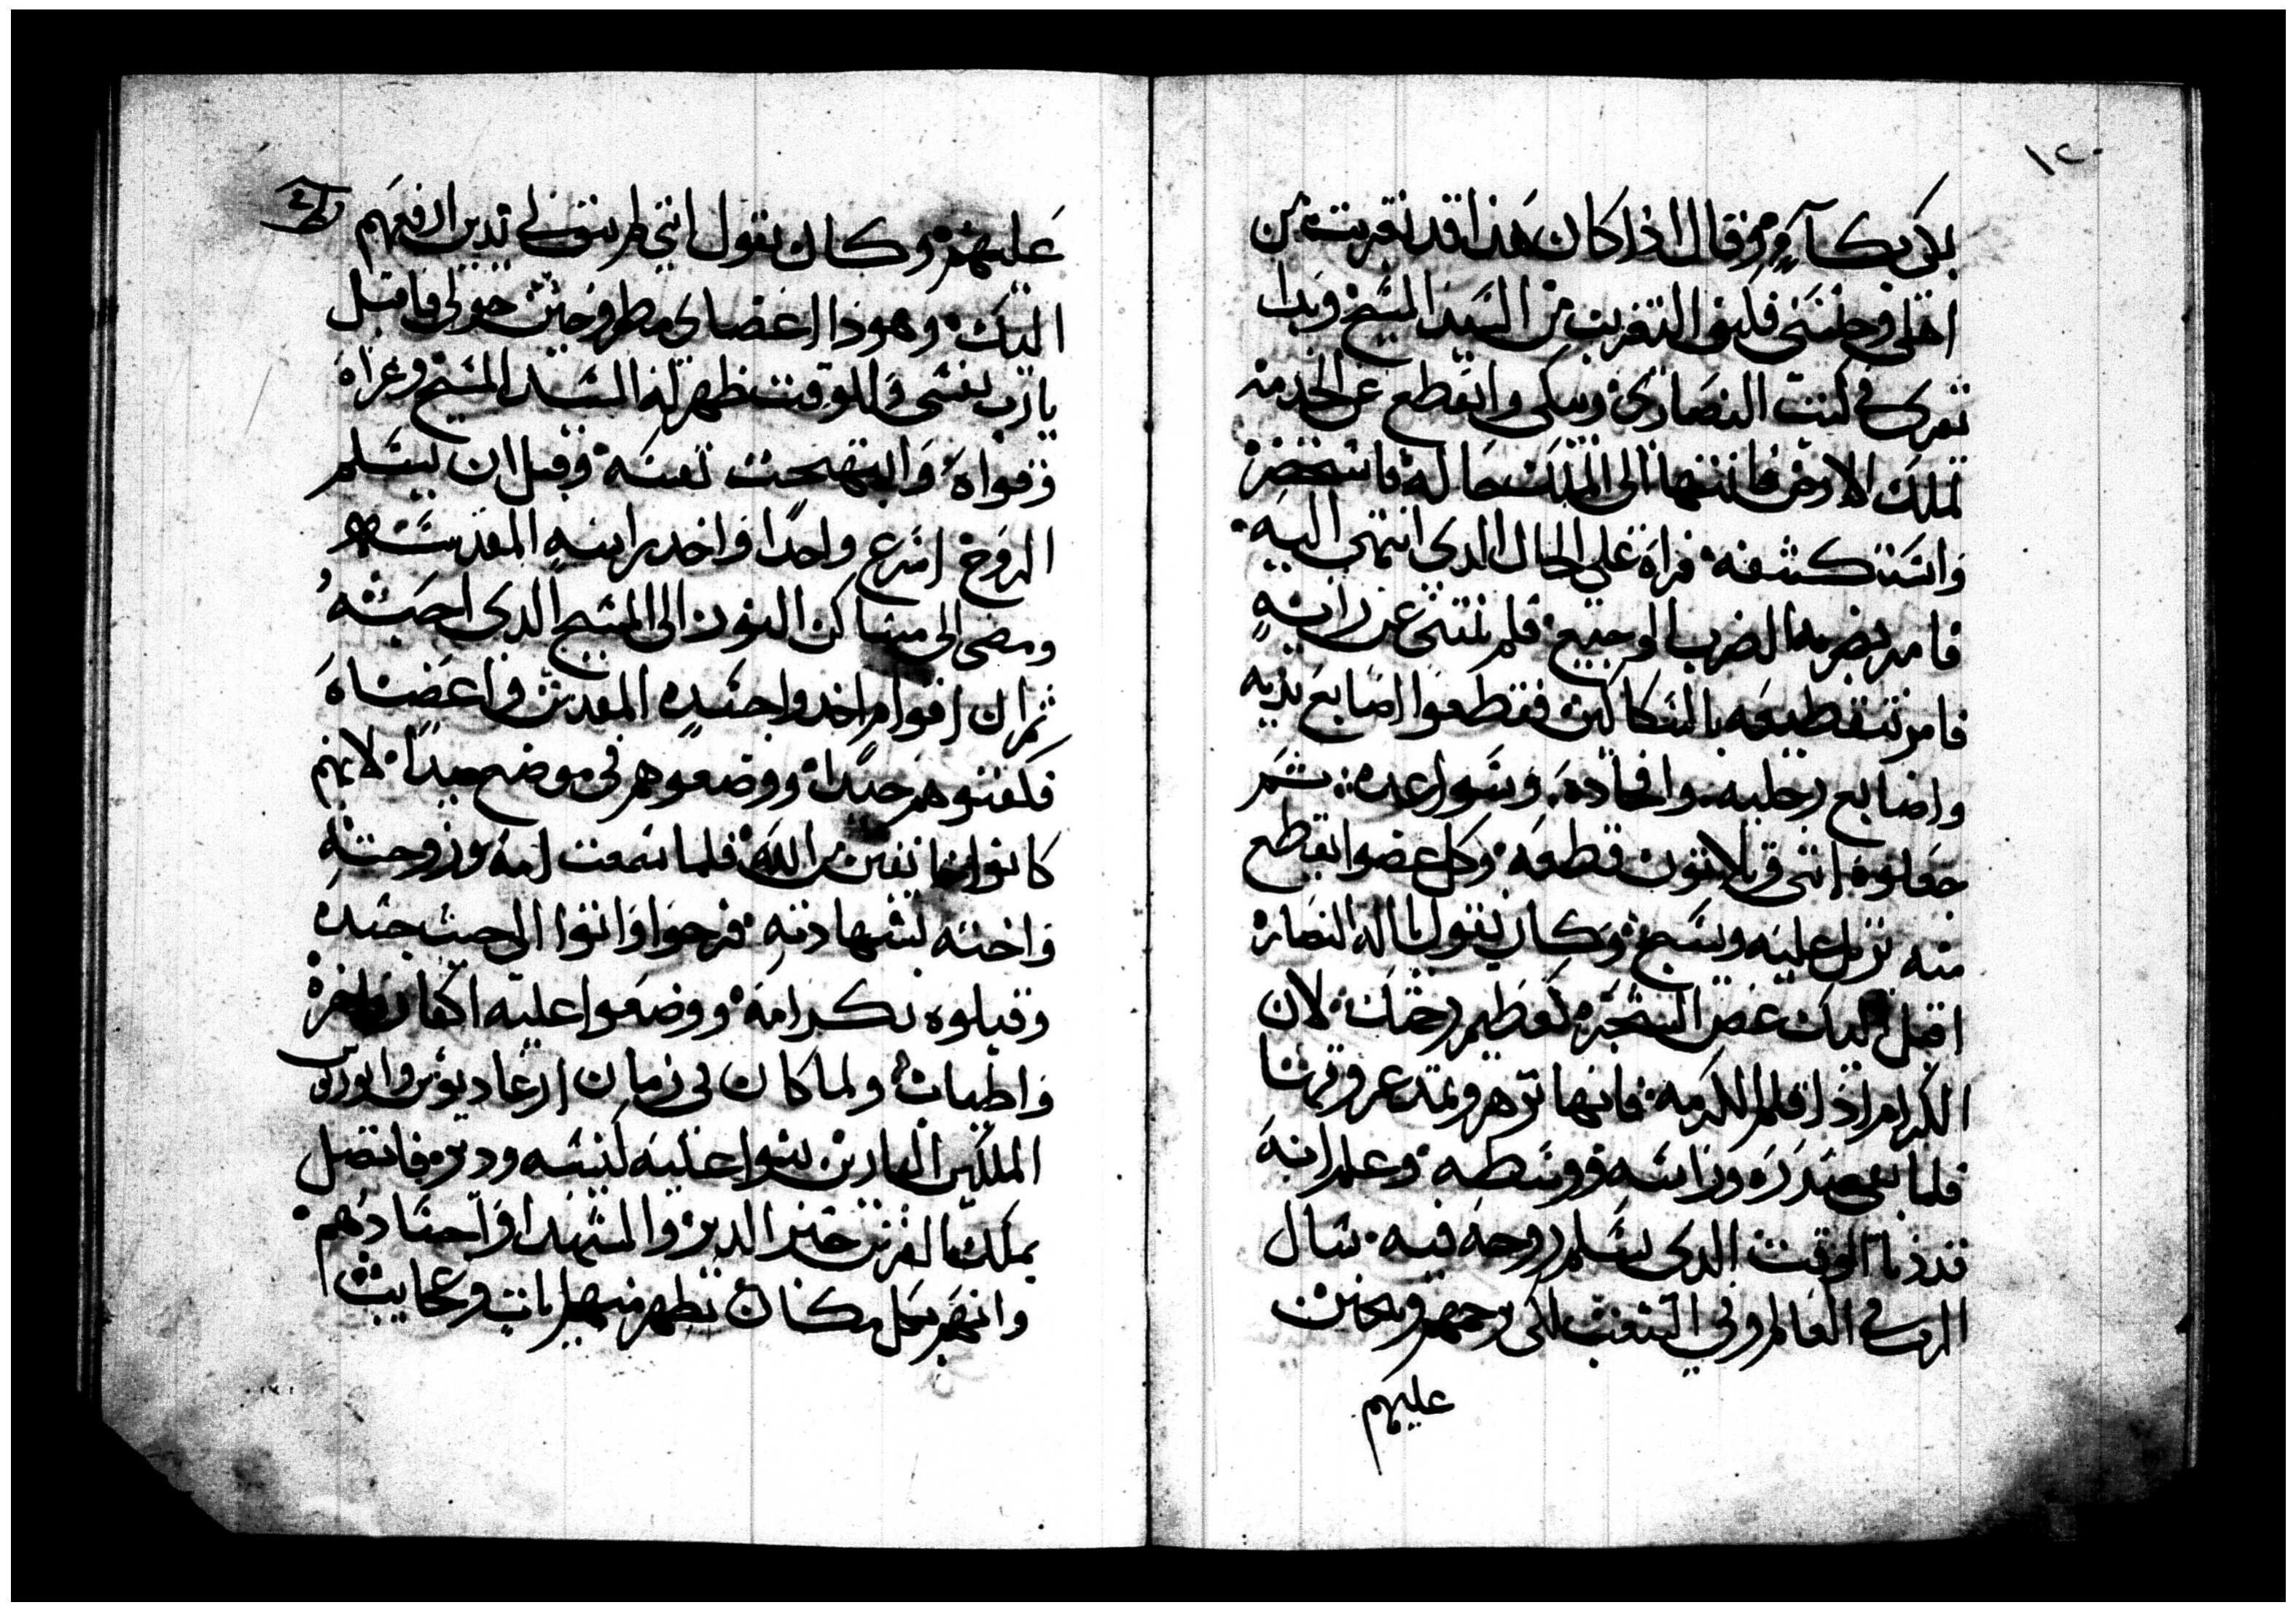 ١٢٠
بكي بكآ مر وقال اذا كان هذا قد تغربت من
اهلي وجنسي فكيف التغرب من السيد المسيح وبدا
تقرى في كتب النصارى ويبكي وانقطع عن الخدمه
لملك الارض فانتها الى الملك حاله فاستحضره
واستكشفه فراه على الحال الذى انتهى اليه
فامر بضربه الضرب الوجيع فلم ينتني عن رايه
فامر بتقطيعه بالسكاكين فقطعوا اصابع يديه
واصابع رجليه وافخاده وسواعده ثم
جعلوه اثنى وثلاثون قطعه وكل عضوا يقطع
منه يرتل عليه ويسبح وكان يقول يا اله النصاره
اقبل اليك غصن الشجره كعظيم رحمتك لان
الكرام اذا قلم الكرمه فانها تزهر وتمتد عروقها
فلما بقى صدره وراسه ووسطه وعلم انه
قد دنا الوقت الدى يسلم روحه فيه سال
الرب في العالم وفي الشعب لكى يرحمهم ويتحنن
عليهم
عليهم وكان يقول انني لم يبق لي يدين ارفعهم
اليك وهوذا اعضاى مطروحين حولي فاقبل
يارب نفسى وللوقت ظهر له السيد المسيح وعزاه
وقواه وابتهجت نفسه وقبل ان يسلم
الروح اسرع واحدا واخد راسه المقدسه
ومضى الى مساكن النور الى المسيح الدى احبه
ثم ان اقوام اخدوا جسده المقدس واعضاه
فكفنوهم جيدا ووضعوهم في موضع جيدا لانهم
كانوا خايفين من الله فلما سمعت امه وزوجته
واخته بشهادته فرحوا واتوا الى حيث جسده
وقبلوه بكرامه ووضعوا عليه اكفان فاخره
واطياب ولما كان في زمان ارغاديوس وانوريوس
الملكين البارين بنوا عليه كنيسه ودير فاتصل
بملك الفرس خبر الدير والشهدا واجسادهم
وانهم بكل مكان تظهر منهم ايات وعجايب